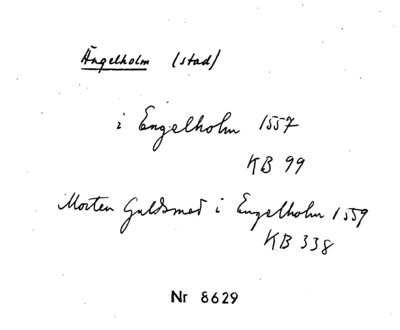 Ängelholm (stad)
i Engelholm 1557
KB 99
Morten Guldsmed i Engelholm 1559
KB 338
Nr 8629